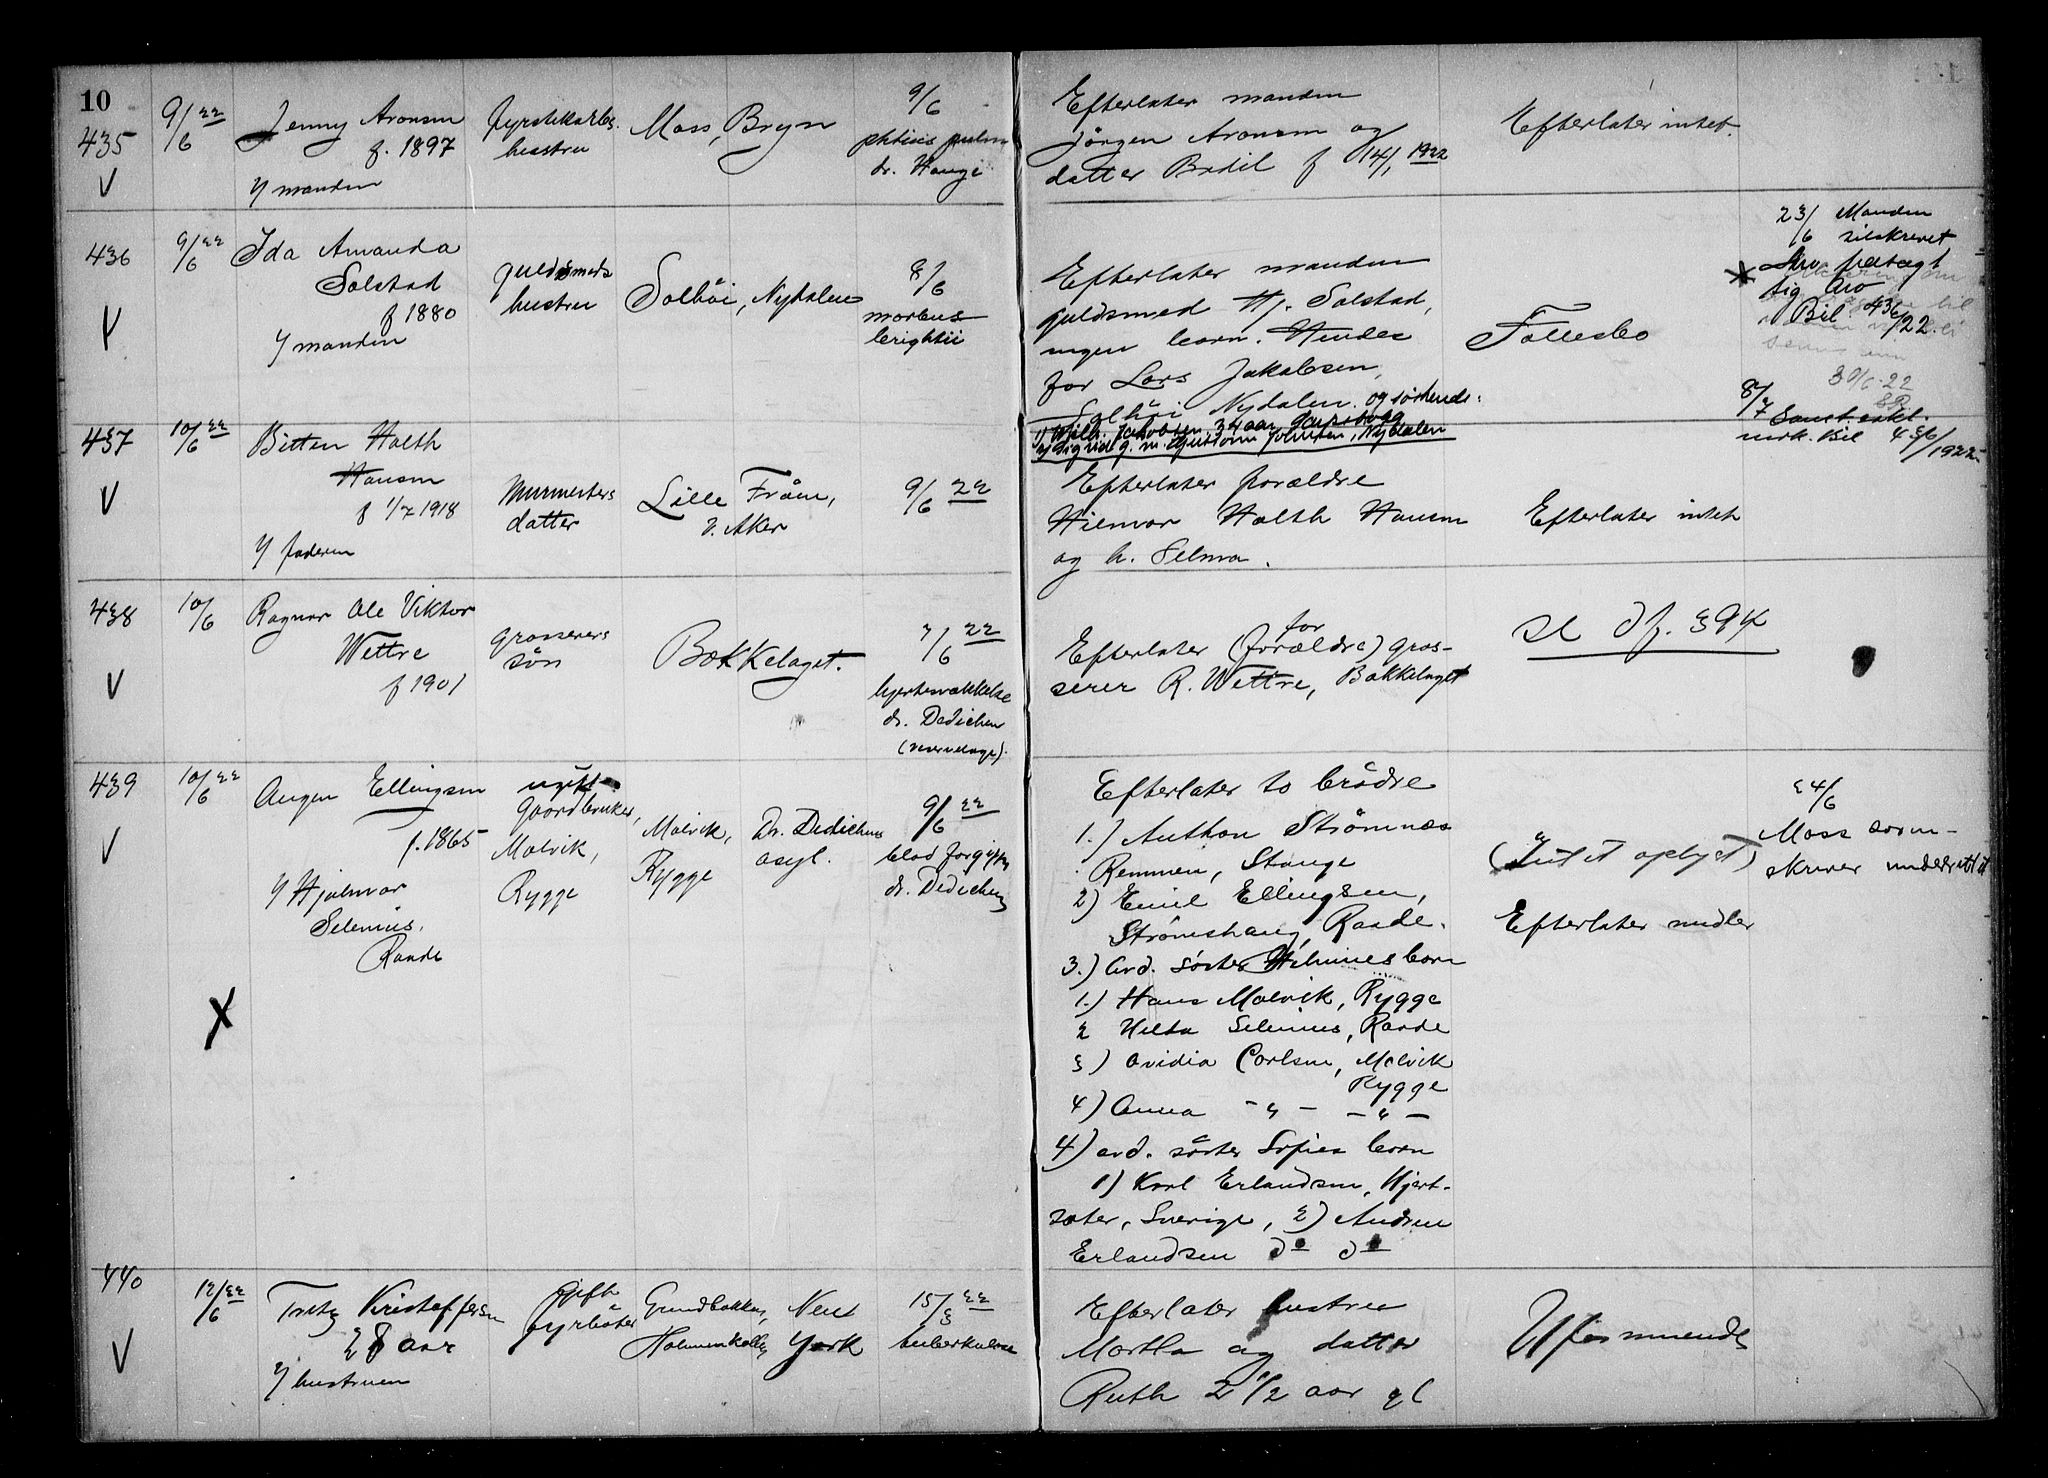 10
435
9/6 22
Jenny Aronsen
f. 1897
v/ manden
fyrstikarb.
hustru
Moss, Bryn
9/6
phtisis pulm
dr. Hauge
Efterlater manden
Jörgen Aronsen og
datter Bodil f 14/1 1922
Efterlater intet.
436
9/6 22
Ida Amanda
Solstad
f 1880
v/ manden
guldsmeds
hustru
Solhöi, Nydalen
8/6
morbus
brightii
Efterlater manden
guldsmed Hj. Solstad,
ingen barn. Hendes
far Lars Jakobsen,
Solhöi Nydalen. og söskende:
1) Wilh. Jakobsen, 34 aar,
2) Sigrid g. m. Johnsen, Nydalen
Fællesbo
23/6 Manden
tilskrevet
* Arv fratagt
sig arv
Bil. 436/22.
30/6 22
8/7
merk. Bil 436/1922
437
10/6 22
Bitten Holth
Hansen
f 1/7 1918
v/ faderen
Murmesters
datter
Lille Frøen,
V. Aker
9/6 22
Efterlater forældre
Hilmar Holth Hansen
og h. Selma.
Efterlater intet
438
10/6
Ragnar Ole Viktor
Wettre
f 1901
grosserers
sön
Bækkelaget.
7/6 22
hjertesvækkelse
dr. Dedichen
(reservelæge).
Efterlater (forældre) far gros-
serer R. Wettre, Bækkelaget
se df. 394
439
10/6 22
Augen Ellingsen
f. 1865
v/ Hjalmar
Selenius,
Raade
ugift
gaardbruker,
Molvik,
Rygge
Molvik,
Rygge
Dr. Dedichens
asyl.
9/6 22
blodforgiftn
dr. Dedichen
Efterlater to brödre
1.) Anthon Strömnæs
Remmen, Stange
2) Emil Ellingsen,
Strömshaug, Raade.
3.) avd. söster Helmines barn
1.) Hans Molvik, Rygge
2 Helta Selenius, Raade
3) Ovidia Carlsen, Molvik
Rygge
4) Anna - " - - " -
4) avd. söster Sofies barn
1) Karl Erlandsen, Hjert-
sæter, Sverige, 2) Andrea
Erlandsen do do
(Intet oplyst)
Efterlater midler
24/6
Moss soren-
skriver underrettet
440
12/6 22
Fritz Kristoffersen
28 aar
v/ hustruen
gift
fyrböter
Grindbakken,
Holmenkollen
New
York
15/3 22
tuberkulose
Efterlater hustru
Martha og datter
Ruth 2 1/2 aar gl
Uformuende